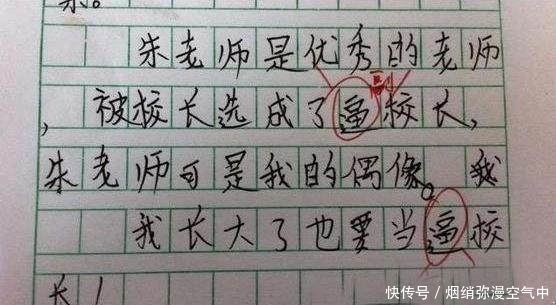 朱老师是优秀的老师
副
,被校长选成了逼校长,
朱老师可是我的偶像。我
我长大了也要当逼校
长!
快传号/烟绡弥漫空气中